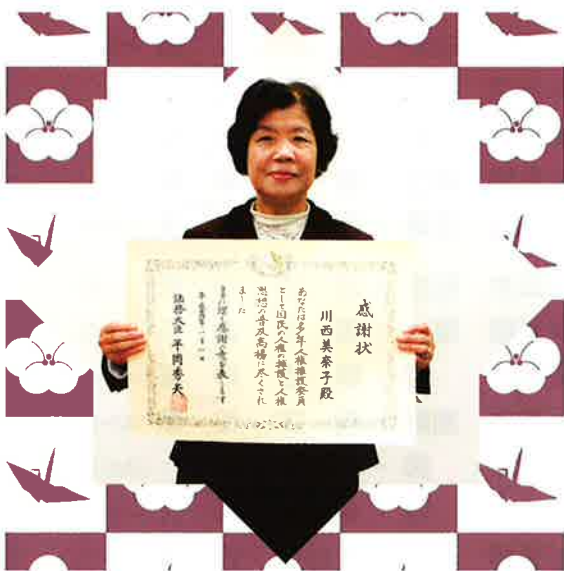 感謝状
川西美奈子殿
あなたは多年人権擁護委員
として国民の人権の擁護と人権
思想の普及高揚に尽くされ
ました
よって深く感謝の意を表します
法務大臣 平岡秀夫